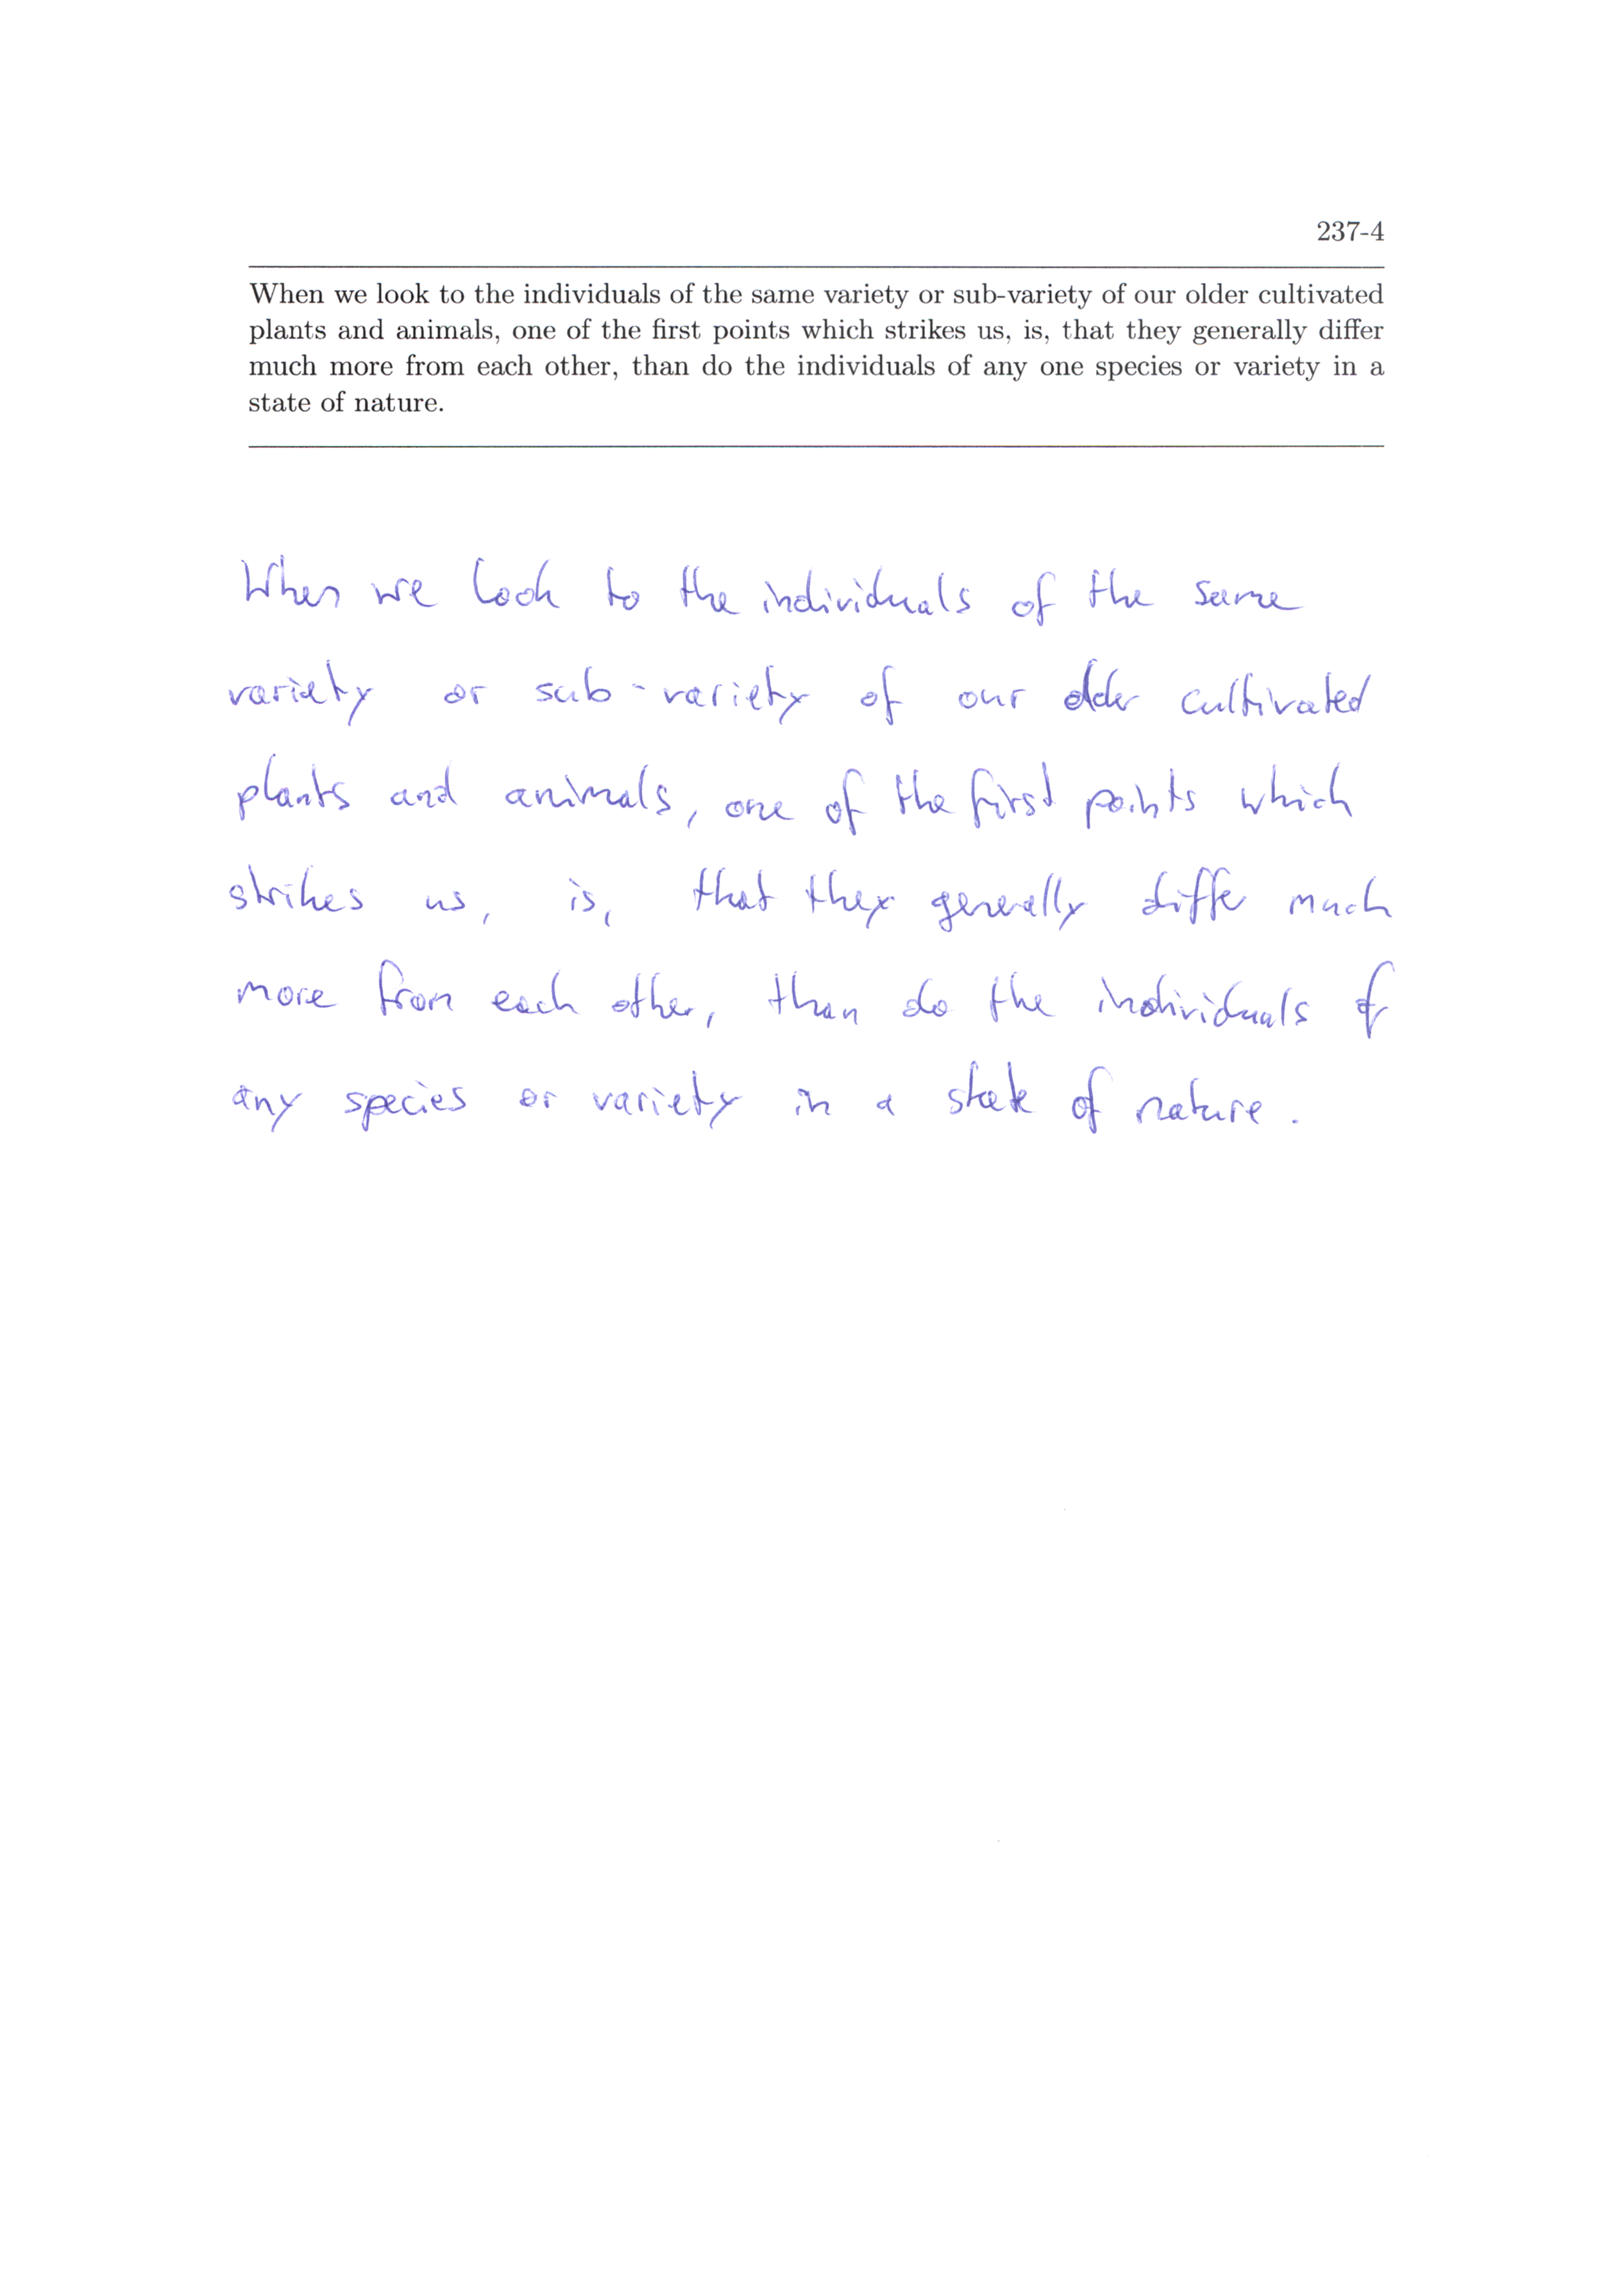 237-4
When we look to the individuals of the same variety or sub-variety of our older cultivated
plants and animals, one of the first points which strikes us, is, that they generally differ
much more from each other, than do the individuals of any one species or variety in a
state of nature.
When we look to the individuals of the same
variety or sub-variety of our older cultivated
plants and animals, one of the first points which
strikes us, is, that they generally differ much
more from each other, than do the individuals of
any species or variety in a state of nature.